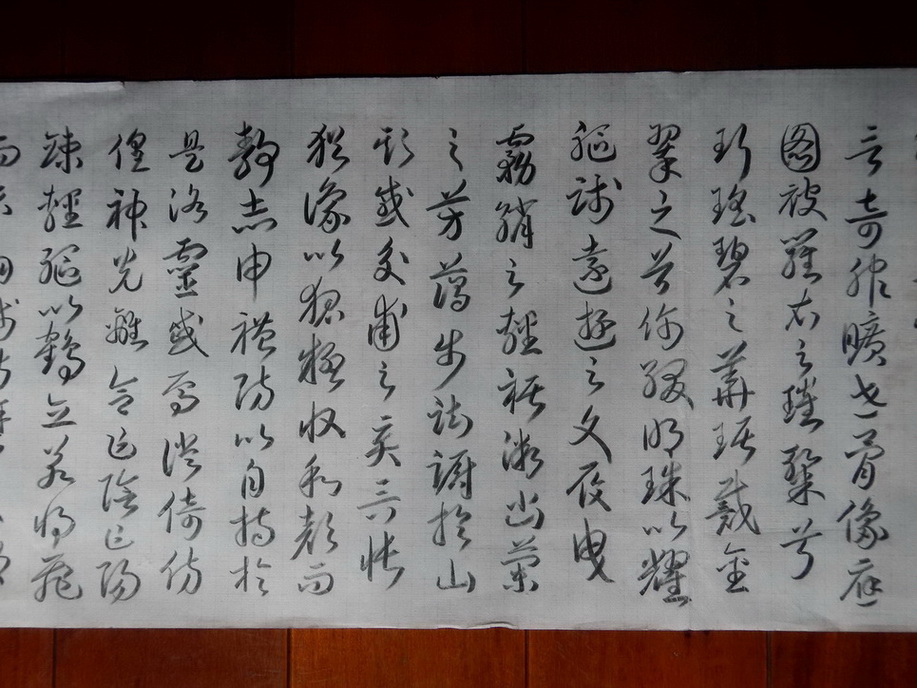 言奇服曠世骨像應
圖被羅衣之璀粲兮
珥瑤碧之華琚戴金
翠之首飾綴明珠以耀
軀踐遠遊之文履曳
霧綃之輕裾微幽蘭
之芳藹步踟躕於山
隅感交甫之棄言悵
猶豫以狐疑收和顏而
靜志申禮防以自持於
是洛靈感焉徙倚彷
徨神光離合乍陰乍陽
竦輕軀以鶴立若將飛